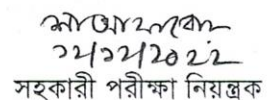 ১২/১২/২০২২
সহকারী পরীক্ষা নিয়ন্ত্রক